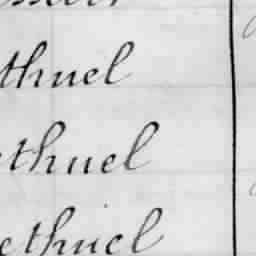 thuel
ethuel
ethuel